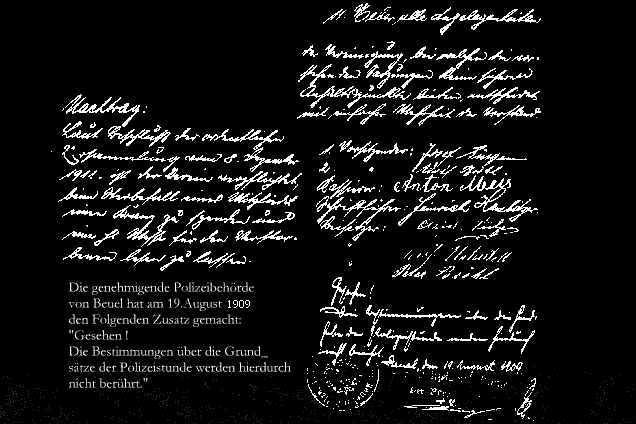 11. Ueber alle Angelegenheiten
der Vereinigung, bei welchen die vor-
stehenden Satzungen keine sicheren
Anhaltspunkte bieten, entscheidet
mit einfacher Mehrheit der Vorstand
Nachtrag:
Laut Beschluß der ordentlichen
Versammlung vom 8. Dezember
1912. ist der Verein verpflichtet,
beim Sterbefall eines Mitgliedes
einen Kranz zu spenden und
eine hl. Messe für den Verstor-
benen lesen zu lassen.
1. Vorsitzender: Josef
2. "
Kassierer: Anton Weiß
Schriftführer: Heinrich
Beisitzer:
Peter Brühl
Die genehmigende Polizeibehörde
von Beuel hat am 19.August 1909
den Folgenden Zusatz gemacht:
"Gesehen !
Die Bestimmungen über die Grund_
sätze der Polizeistunde werden hierdurch
nicht berührt."
Gesehen!
Die Bestimmungen über die Grund-
sätze der Polizeistunde werden hierdurch
nicht berührt. Beuel, den 19. August 1909